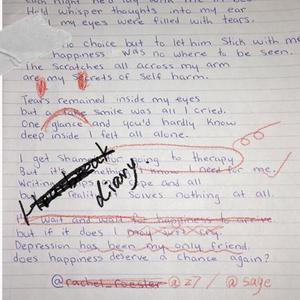 Each night he'd lay with me in bed
Held whisper thoughts into my ear
my eyes were filled with tears.
no choice but to let him stick with me
happiness was no where to be seen.
The Scratches all across my arm
are my secrets of self harm.
Tears remained inside my eyes
but a fake smile was all I cried.
One glance and you'd hardly know
deep inside I felt all alone.
I get shame for going to therapy
But it's something I know I need for me.
Writing cope and all
but reality solves nothing at all.
diary.
I wait and wait for happiness to arrive
but if it does I may not cry.
Depression has been my only friend,
does happiness deserve a chance again?
@rachel_roester @z7 / @sage